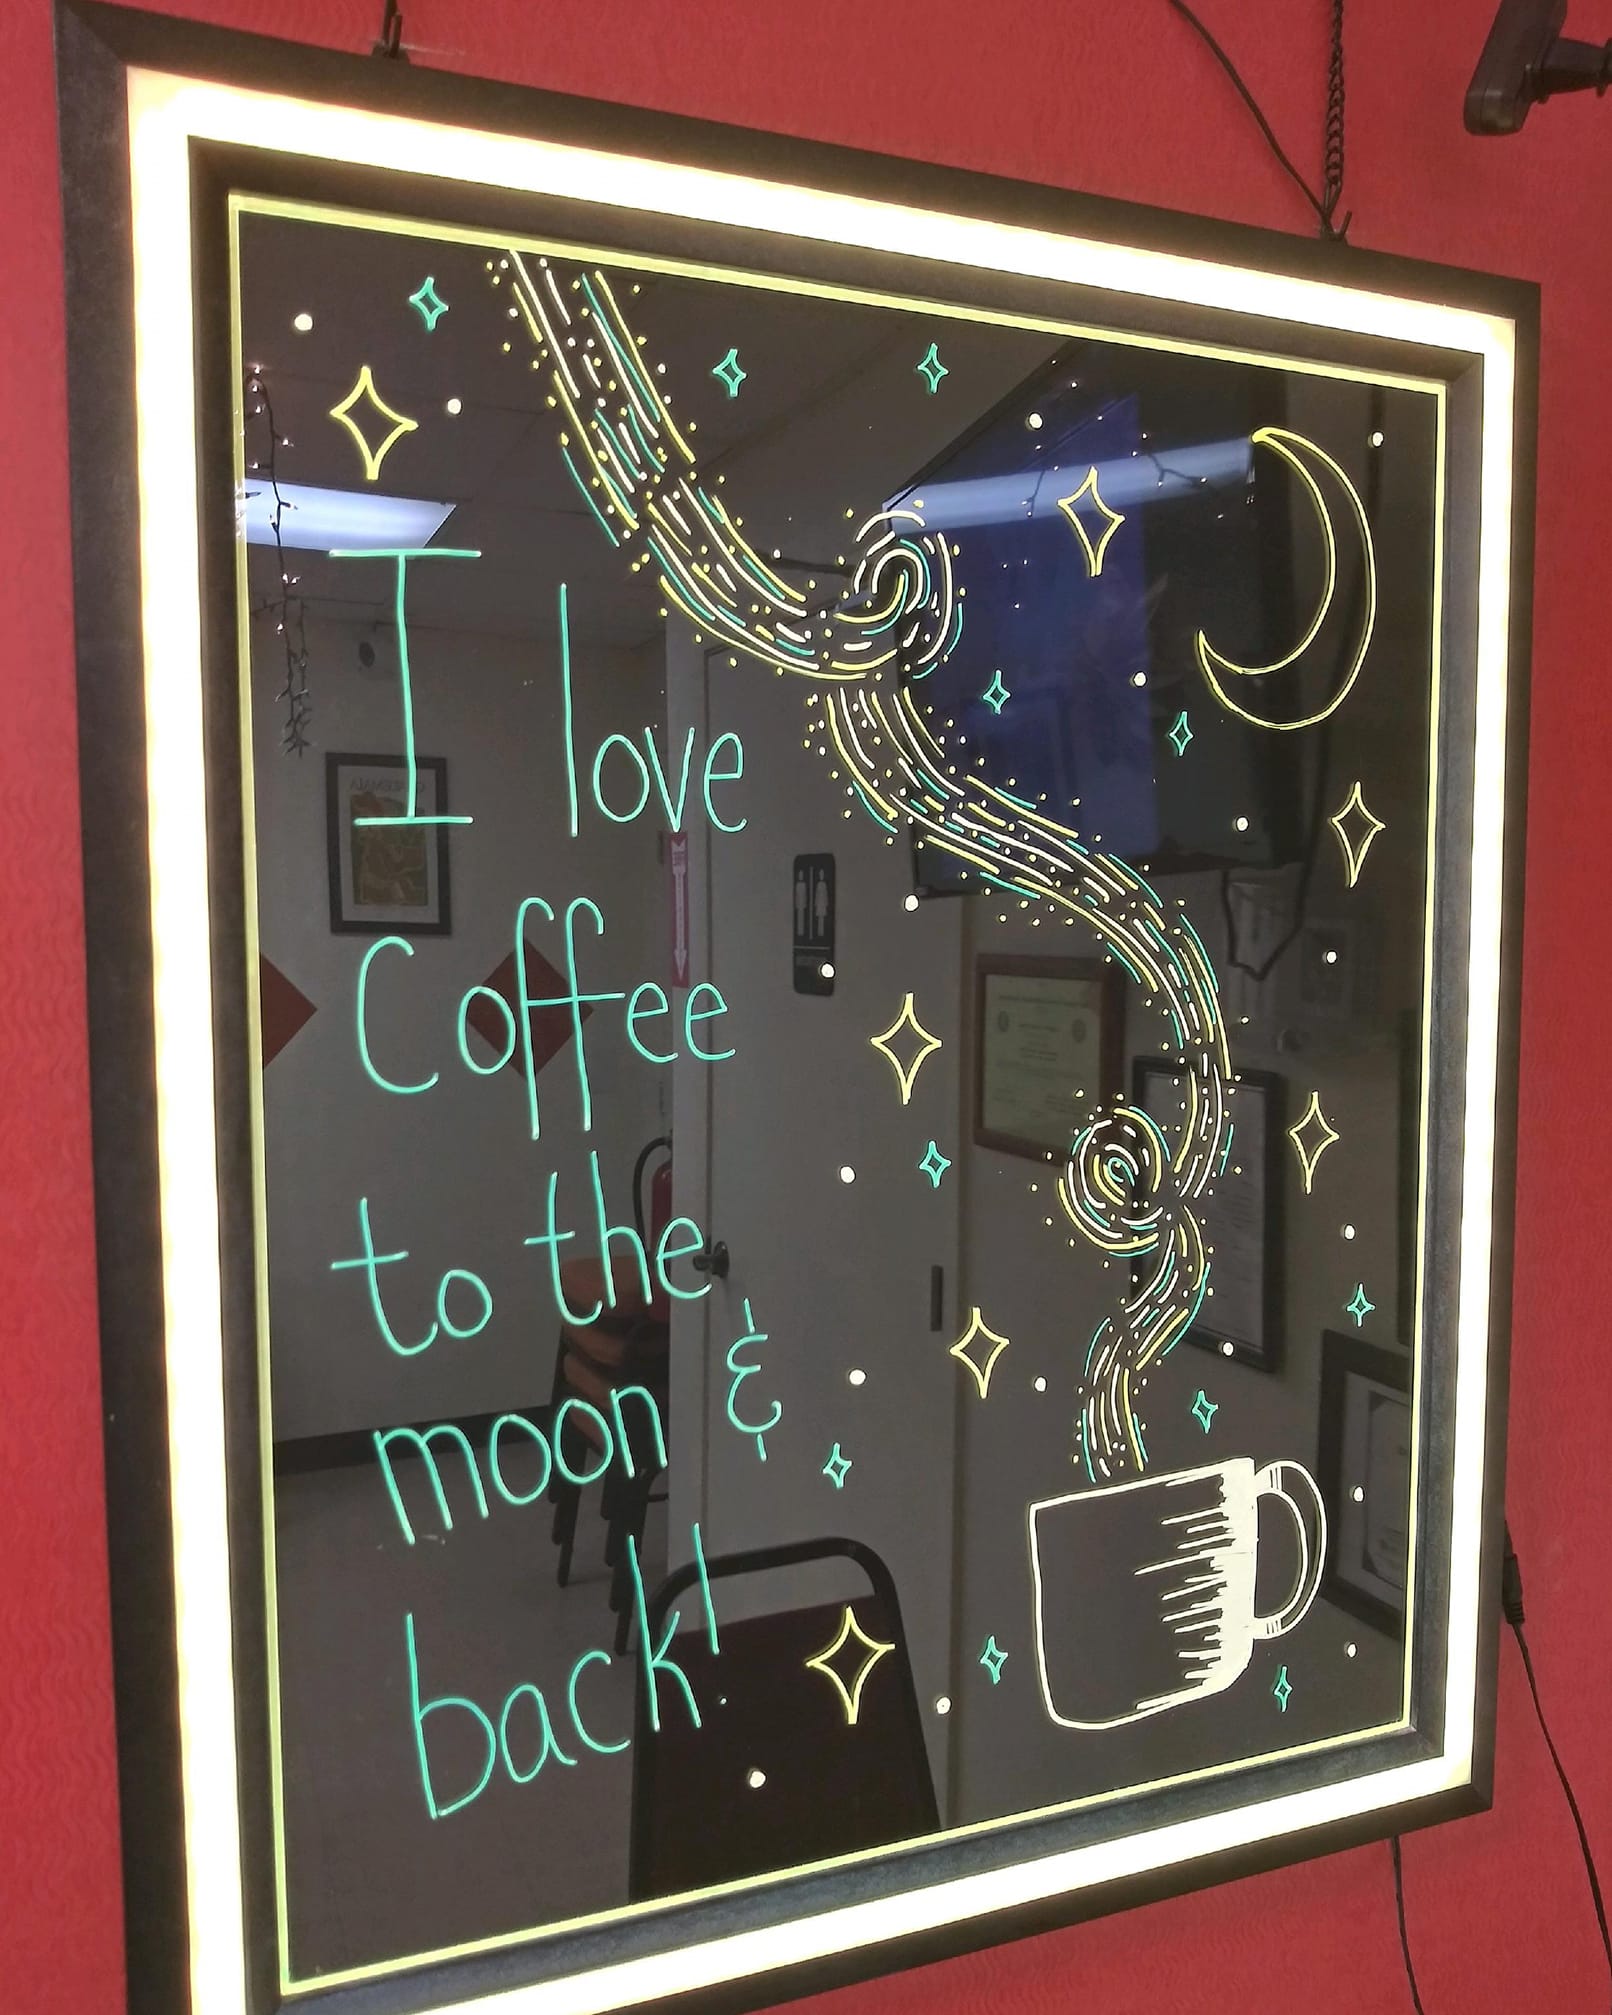 I love
Coffee
to the
moon &
back!